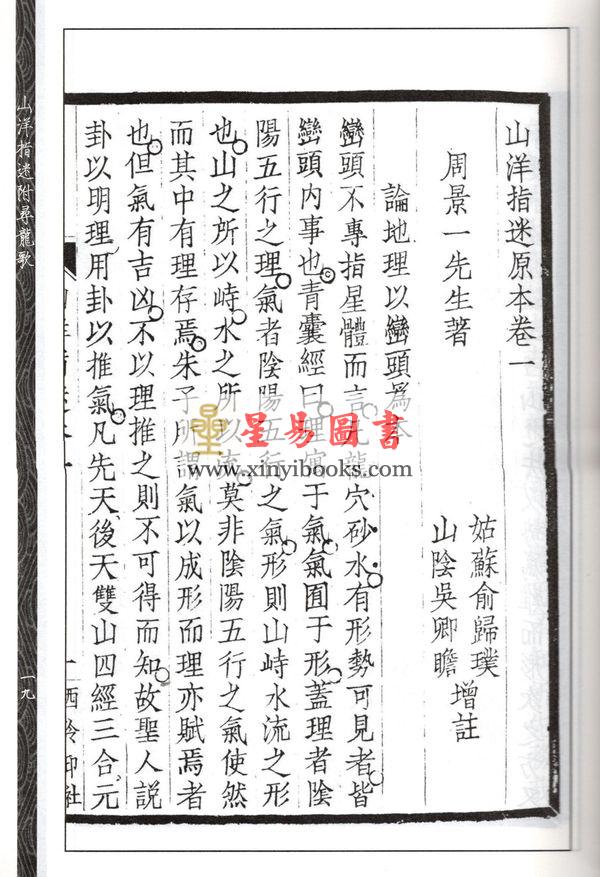 山洋指迷原本卷一
周景一先生著
姑蘇俞歸璞
山陰吳卿瞻
增註
論地理以巒頭爲本
巒頭不專指星體而言凡龍穴砂水有形勢可見者皆
巒頭內事也青囊經曰理寓于氣氣囿于形蓋理者陰
陽五行之理氣者陰陽五行之氣形則山峙水流之形
也山之所以峙水之所以流莫非陰陽五行之氣使然
而其中有理存焉朱子所謂氣以成形而理亦賦焉者
也但氣有吉凶不以理推之則不可得而知故聖人説
卦以明理用卦以推氣凡先天後天雙山四經三合元
西泠印社
山洋指迷附尋龍歌
一九
星易圖書
www.xinyibooks.com